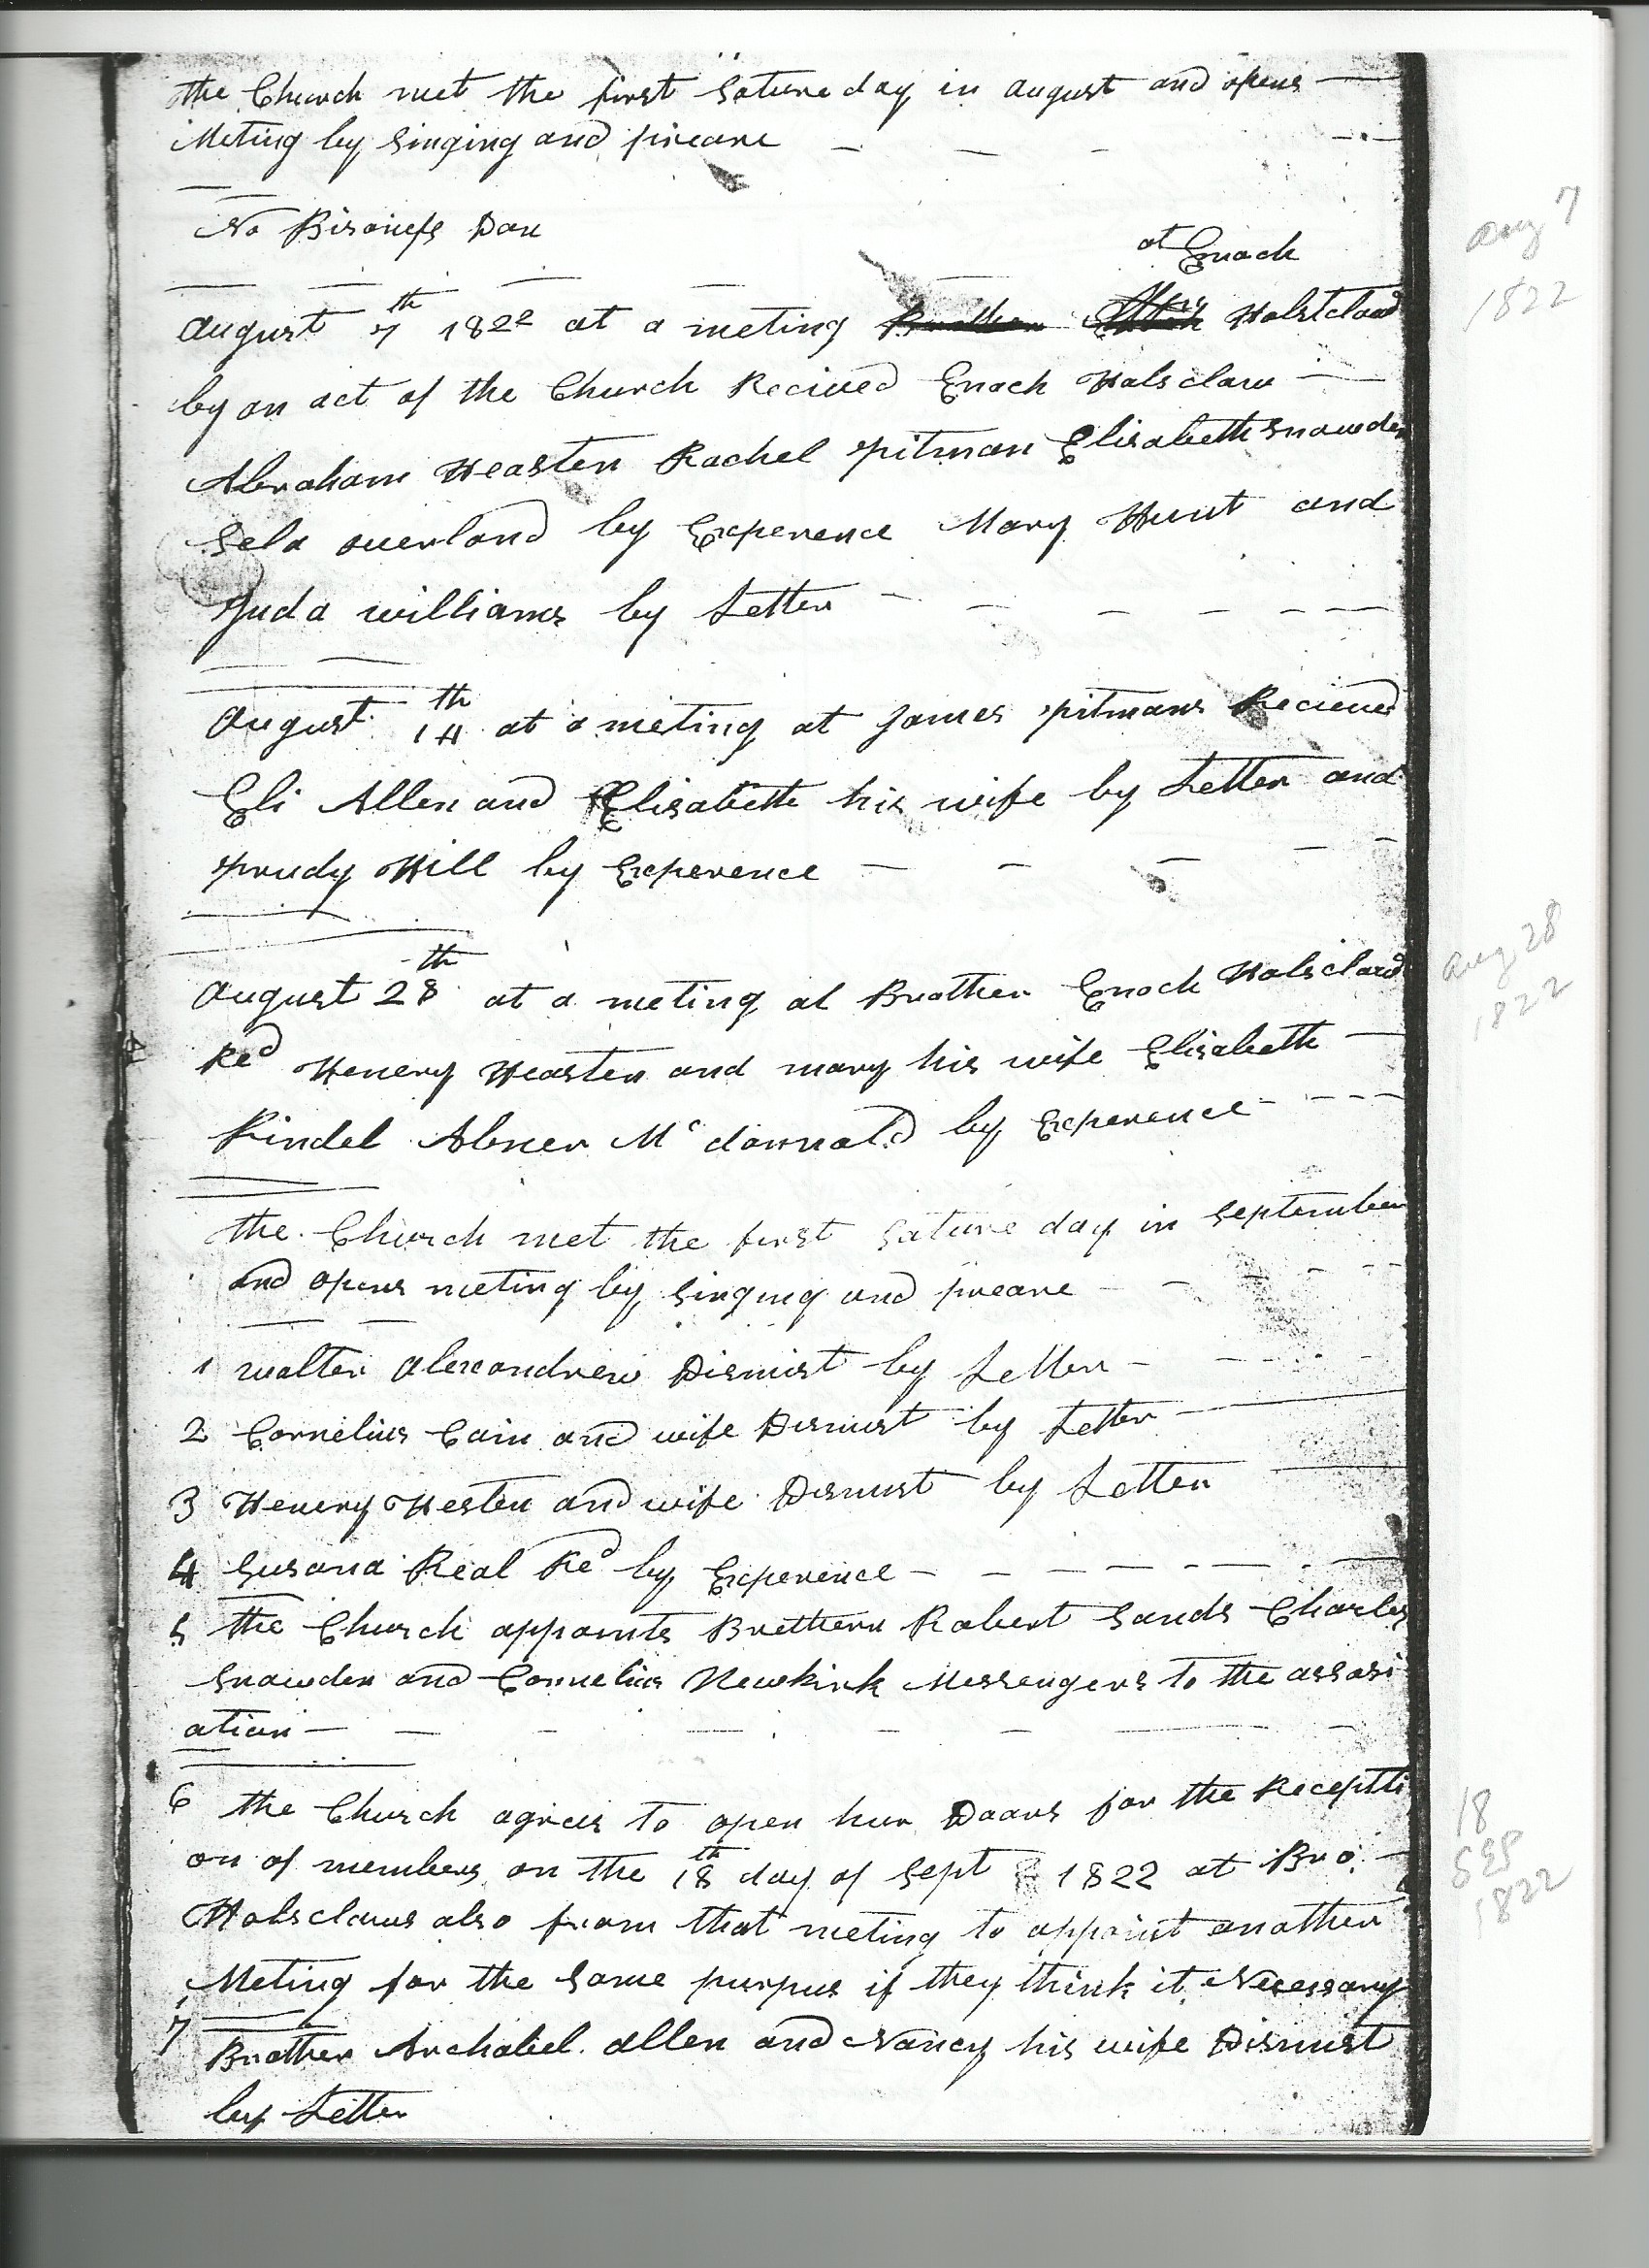 the Church met the first Satureday in august and opens
Meting by Singing and preare
No Bisoness Don
at Enoch
august 7th 1822 at a meting Brother Holstclaw
by an act of the Church Recived Enoch Holsclaw
Abraham Heasten Rachel pitman Elisabeth Snowden
Sela overland by Experence Mary Hunt and
Juda williams by Letter
august 14th at a meting at James pitmans Recieved
Eli Allen and Elisabeth his wife by Letter and
prudy Hill by Experence
august 28th at a meting at Brother Enoch Holsclaw
Red Henery Heasten and mary his wife Elisabeth
Rindel Abner Mcdonnald by Experence
the Church met the first Sature day in September
and opens meting by Singing and preare
1 walter Alexandrew Dismist by Letter
2 Cornelius Cain and wife Dismist by Letter
3 Henery Hesten and wife Dismist by Letter
4 Susana Real Red by Experence
5 the Church appoints Brethern Robert Sands Charles
Snowden and Cornelius Newkirk Messengers to the assosi
ation
6 the Church agrees to open hur Doors for the Receptti
on of members on the 18th day of Sept 1822 at Bro.
Holsclaws also from that meting to appoint another
Meting for the Same purpus if they think it Necessary
7 Brother Archabel Allen and Nancy his wife Dismist
by Letter
aug 7
1822
aug 28
1822
18
SEP
1822